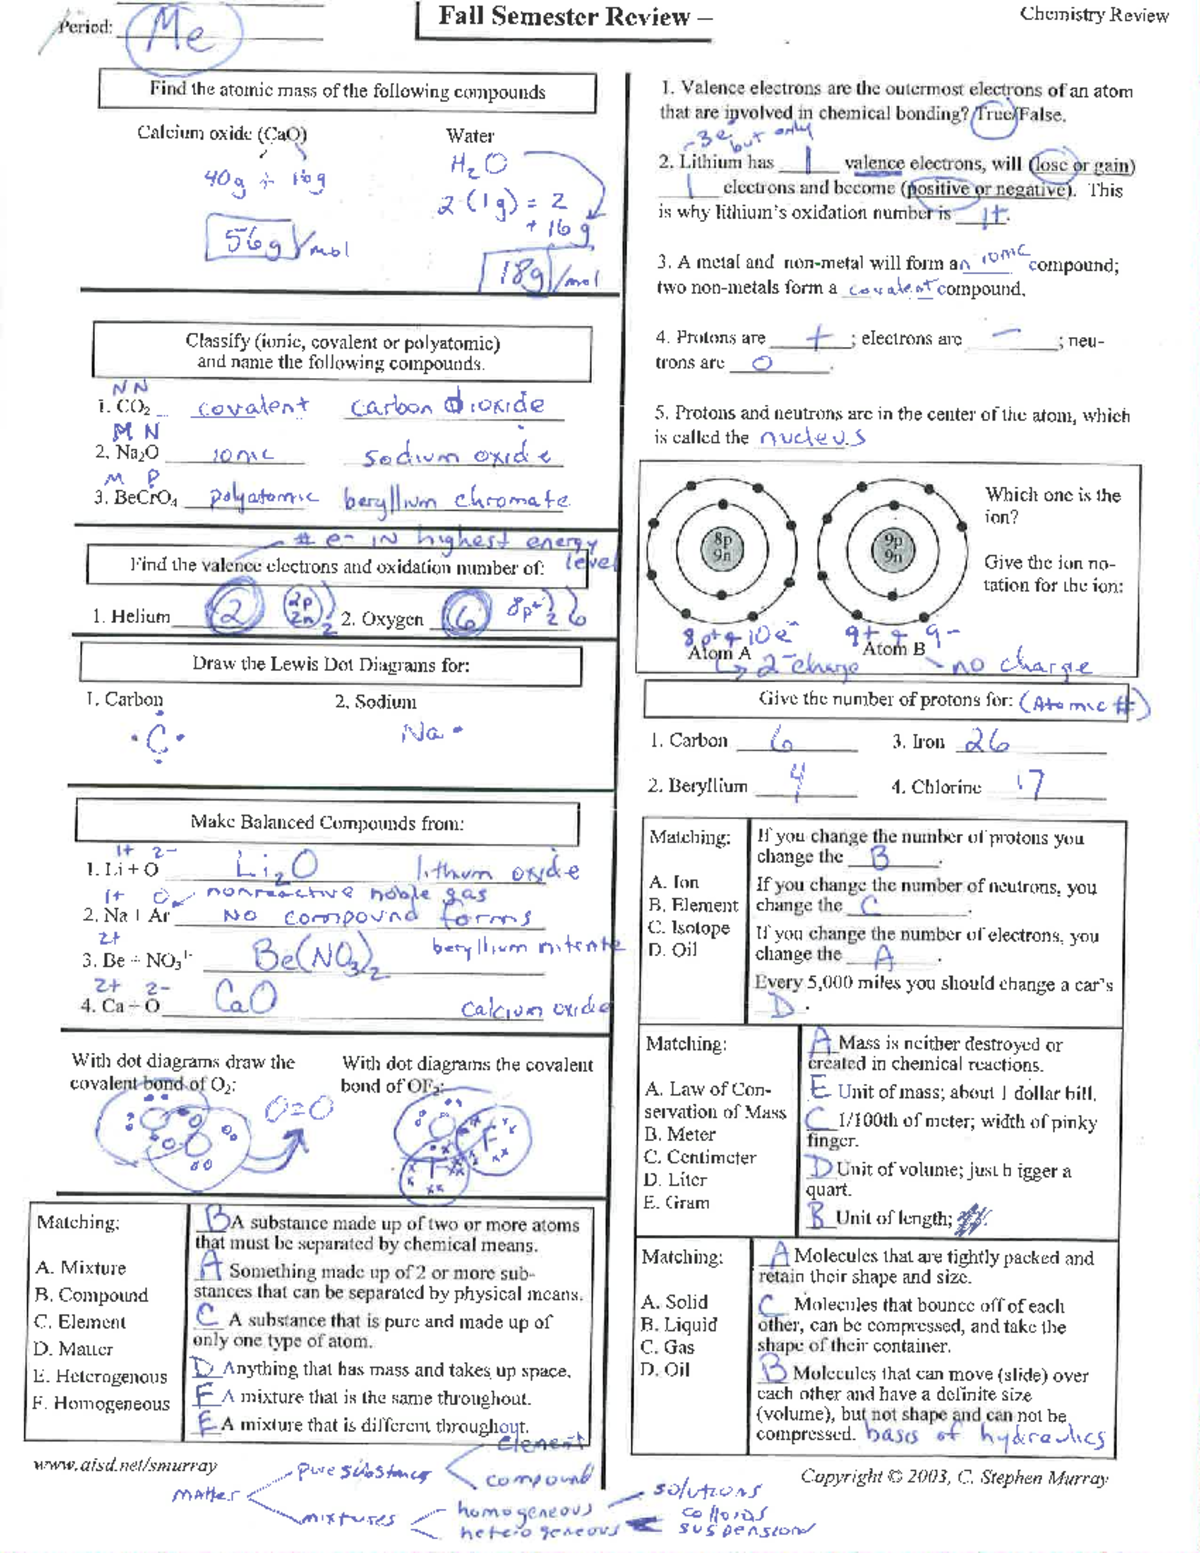 Period: Me
Fall Semester Review –
Chemistry Review
Find the atomic mass of the following compounds
Calcium oxide (CaO)
40g + 16g
56g/mol
Water
H2O
2(1g) = 2
+ 16g
18g/mol
Classify (ionic, covalent or polyatomic)
and name the following compounds.
N N
1. CO2 covalent carbon dioxide
M N
2. Na2O ionic sodium oxide
M P
3. BeCrO4 polyatomic beryllium chromate
# e- IN highest energy
level
Find the valence electrons and oxidation number of:
1. Helium 2 2p 2n 2
2. Oxygen 6 8p+ 2 6
Draw the Lewis Dot Diagrams for:
1. Carbon
2. Sodium
C
Na
Make Balanced Compounds from:
1+ 2-
1. Li + O Li2O lithium oxide
1+ 0 nonreactive noble gas
2. Na + Ar No compound forms
2+
3. Be + NO3 1- Be(NO3)2 beryllium nitrate
2+ 2-
4. Ca + O CaO calcium oxide
With dot diagrams draw the
covalent bond of O2:
O=O
With dot diagrams the covalent
bond of OF2:
Matching:
A. Mixture
B. Compound
C. Element
D. Matter
E. Heterogenous
F. Homogeneous
B A substance made up of two or more atoms
that must be separated by chemical means.
A Something made up of 2 or more sub-
stances that can be separated by physical means.
C A substance that is pure and made up of
only one type of atom.
D Anything that has mass and takes up space.
F A mixture that is the same throughout.
E A mixture that is different throughout.
www.aisd.net/smurray
matter
pure substance
element
compound
mixtures
homogeneous
heterogeneous
solutions
colloids
suspension
1. Valence electrons are the outermost electrons of an atom
that are involved in chemical bonding? True/False.
3e- but only
2. Lithium has 1 valence electrons, will (lose or gain)
1 electrons and become (positive or negative). This
is why lithium's oxidation number is 1+.
3. A metal and non-metal will form an ionic compound;
two non-metals form a covalent compound.
4. Protons are +; electrons are −; neu-
trons are 0.
5. Protons and neutrons are in the center of the atom, which
is called the nucleus
8p
9n
9p
9n
Which one is the
ion?
Give the ion no-
tation for the ion:
8p+ + 10e-
Atom A
2- charge
9+ + 9-
Atom B
no charge
Give the number of protons for: (Atomic #)
1. Carbon 6
3. Iron 26
2. Beryllium 4
4. Chlorine 17
Matching:
A. Ion
B. Element
C. Isotope
D. Oil
If you change the number of protons you
change the B.
If you change the number of neutrons, you
change the C.
If you change the number of electrons, you
change the A.
Every 5,000 miles you should change a car's
D.
Matching:
A. Law of Con-
servation of Mass
B. Meter
C. Centimeter
D. Liter
E. Gram
A Mass is neither destroyed or
created in chemical reactions.
E Unit of mass; about 1 dollar bill.
C 1/100th of meter; width of pinky
finger.
D Unit of volume; just b igger a
quart.
B Unit of length;
Matching:
A. Solid
B. Liquid
C. Gas
D. Oil
A Molecules that are tightly packed and
retain their shape and size.
C Molecules that bounce off of each
other, can be compressed, and take the
shape of their container.
B Molecules that can move (slide) over
each other and have a definite size
(volume), but not shape and can not be
compressed. basis of hydraulics
Copyright © 2003, C. Stephen Murray